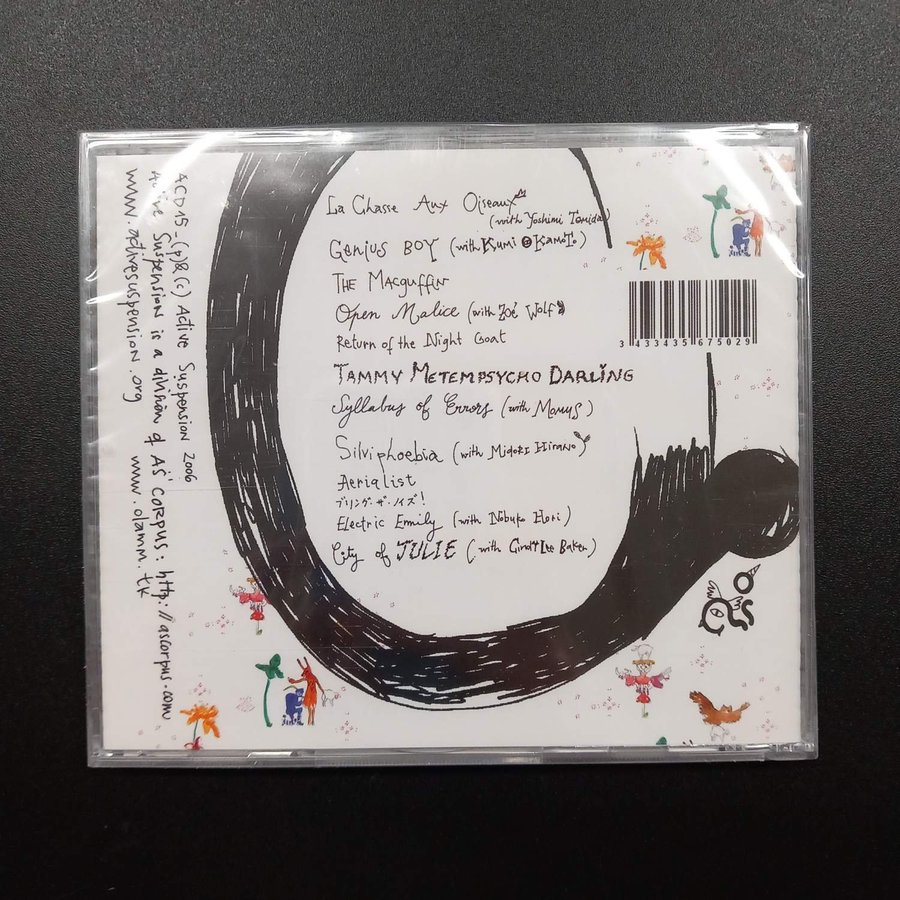 La Chasse Aux Oiseaux
(with Yoshimi Tomida)
Genius Boy (with Kumi Okamoto)
The Macguffin
Open Malice (with Zoé Wolf)
Return of the Night Goat
Tammy Metempsycho Darling
Syllabus of Errors (with Momus)
Silviphoebia (with Midori Hirano)
Aerialist
ブリング・ザ・ノイズ!
Electric Emily (with Nobuko Hori)
City of JULIE (with Lee Baker)
3 433435 675029
ACD15_(p)&(c) Active Suspension 2006
Active Suspension is a division of AS CORPUS: http://ascorpus.com
www.activesuspension.org www.olamm.tk